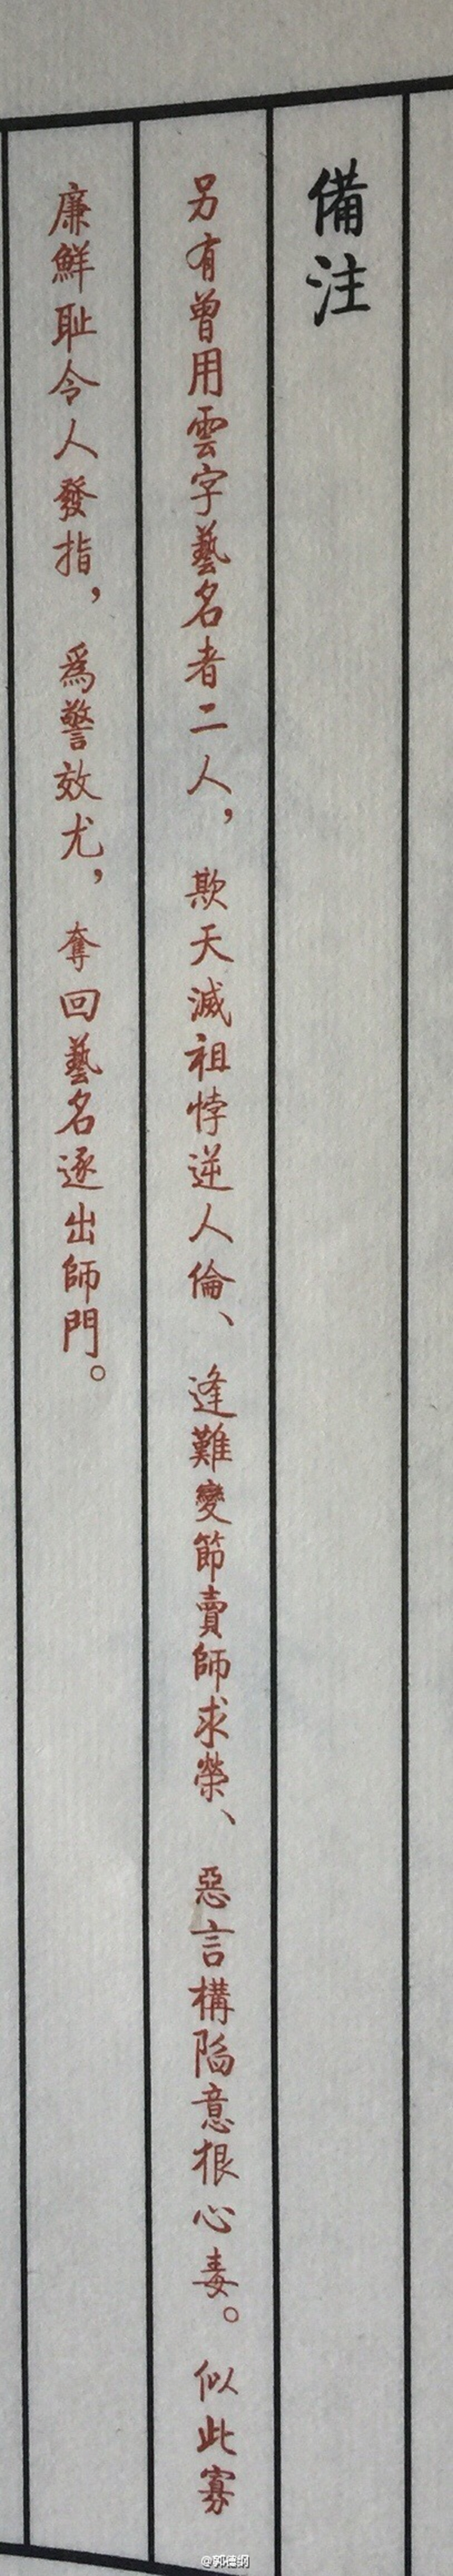 備注
另有曾用雲字藝名者二人，欺天滅祖悖逆人倫、逢難變節賣師求榮、惡言構陷意狠心毒。似此寡
廉鮮恥令人發指，為警效尤，奪回藝名逐出師門。
@郭德綱